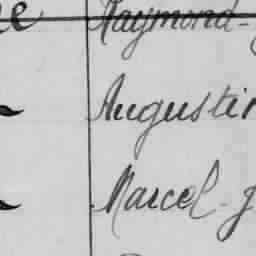 Raymond-
Augustin
Marcel-J